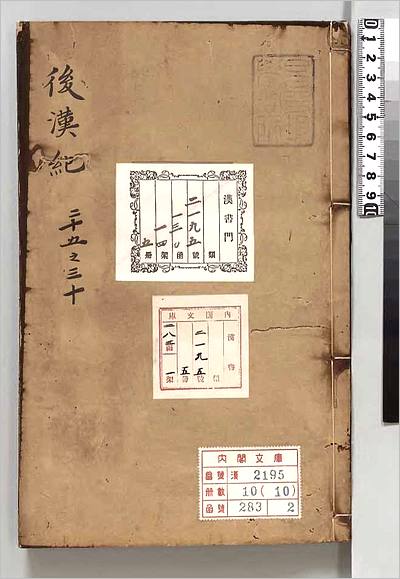 後漢紀
二十五之三十
漢書門
類
二一九五號
一三〇函
一四架
五册
内閣文庫
漢書
二一九五號
五
一架
内閣文庫
番號 漢 2195
冊數 10(10)
函號 283 2
10 1 2 3 4 5 6 7 8 9 10